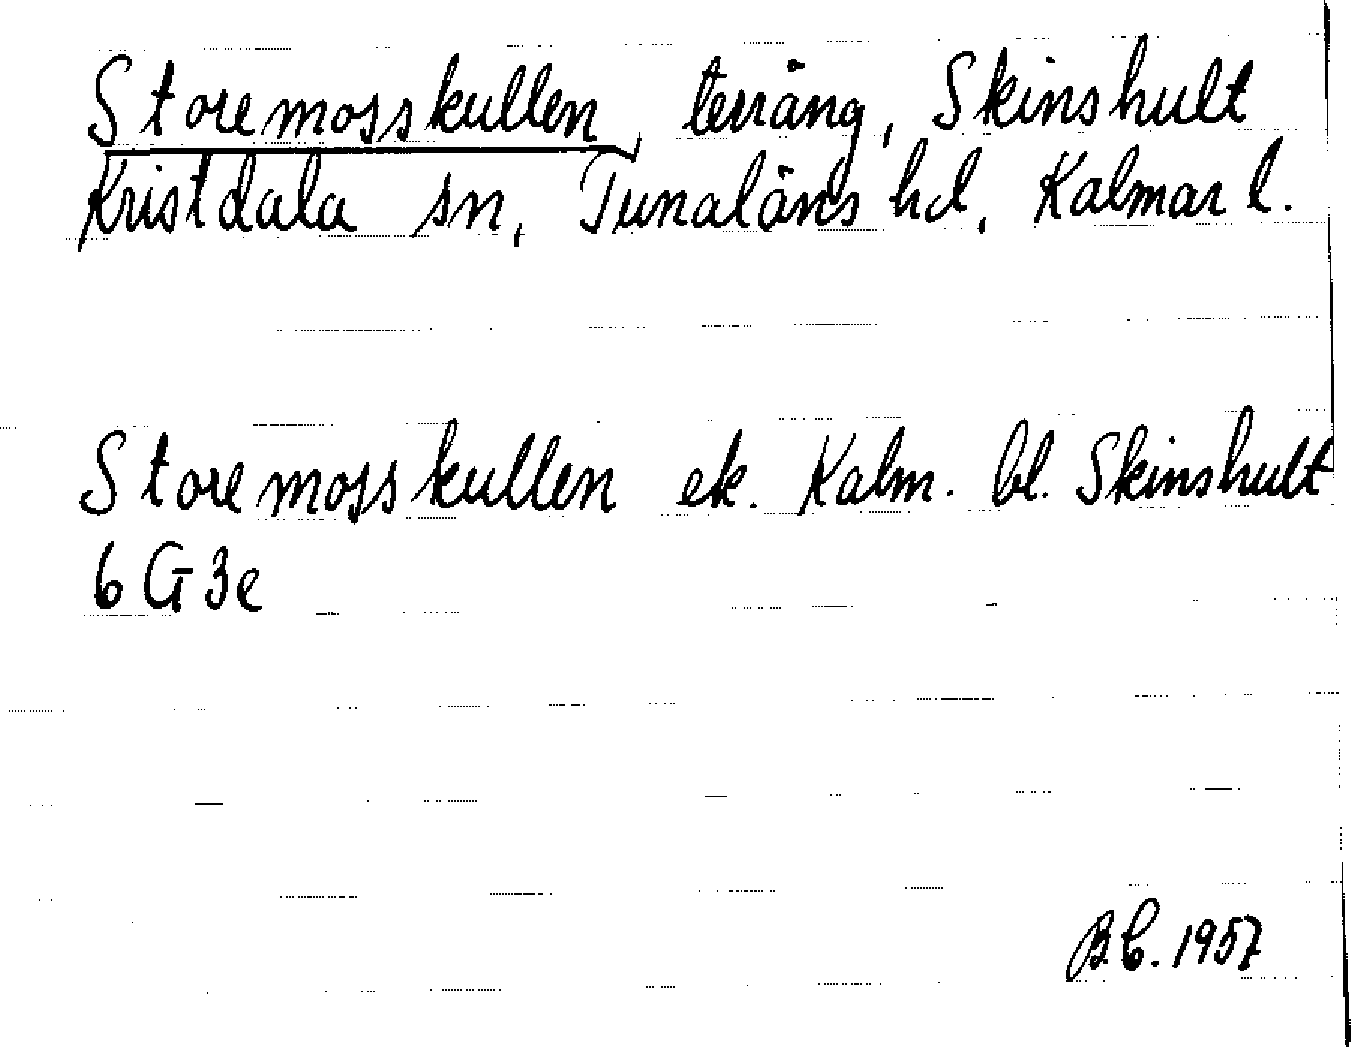 Storemosskullen, terräng, Skinshult
Kristdala sn, Tunaläns hd, Kalmar l.
Storemosskullen ek. Kalm. bl. Skinshult
6 G 3e
B.C. 1957